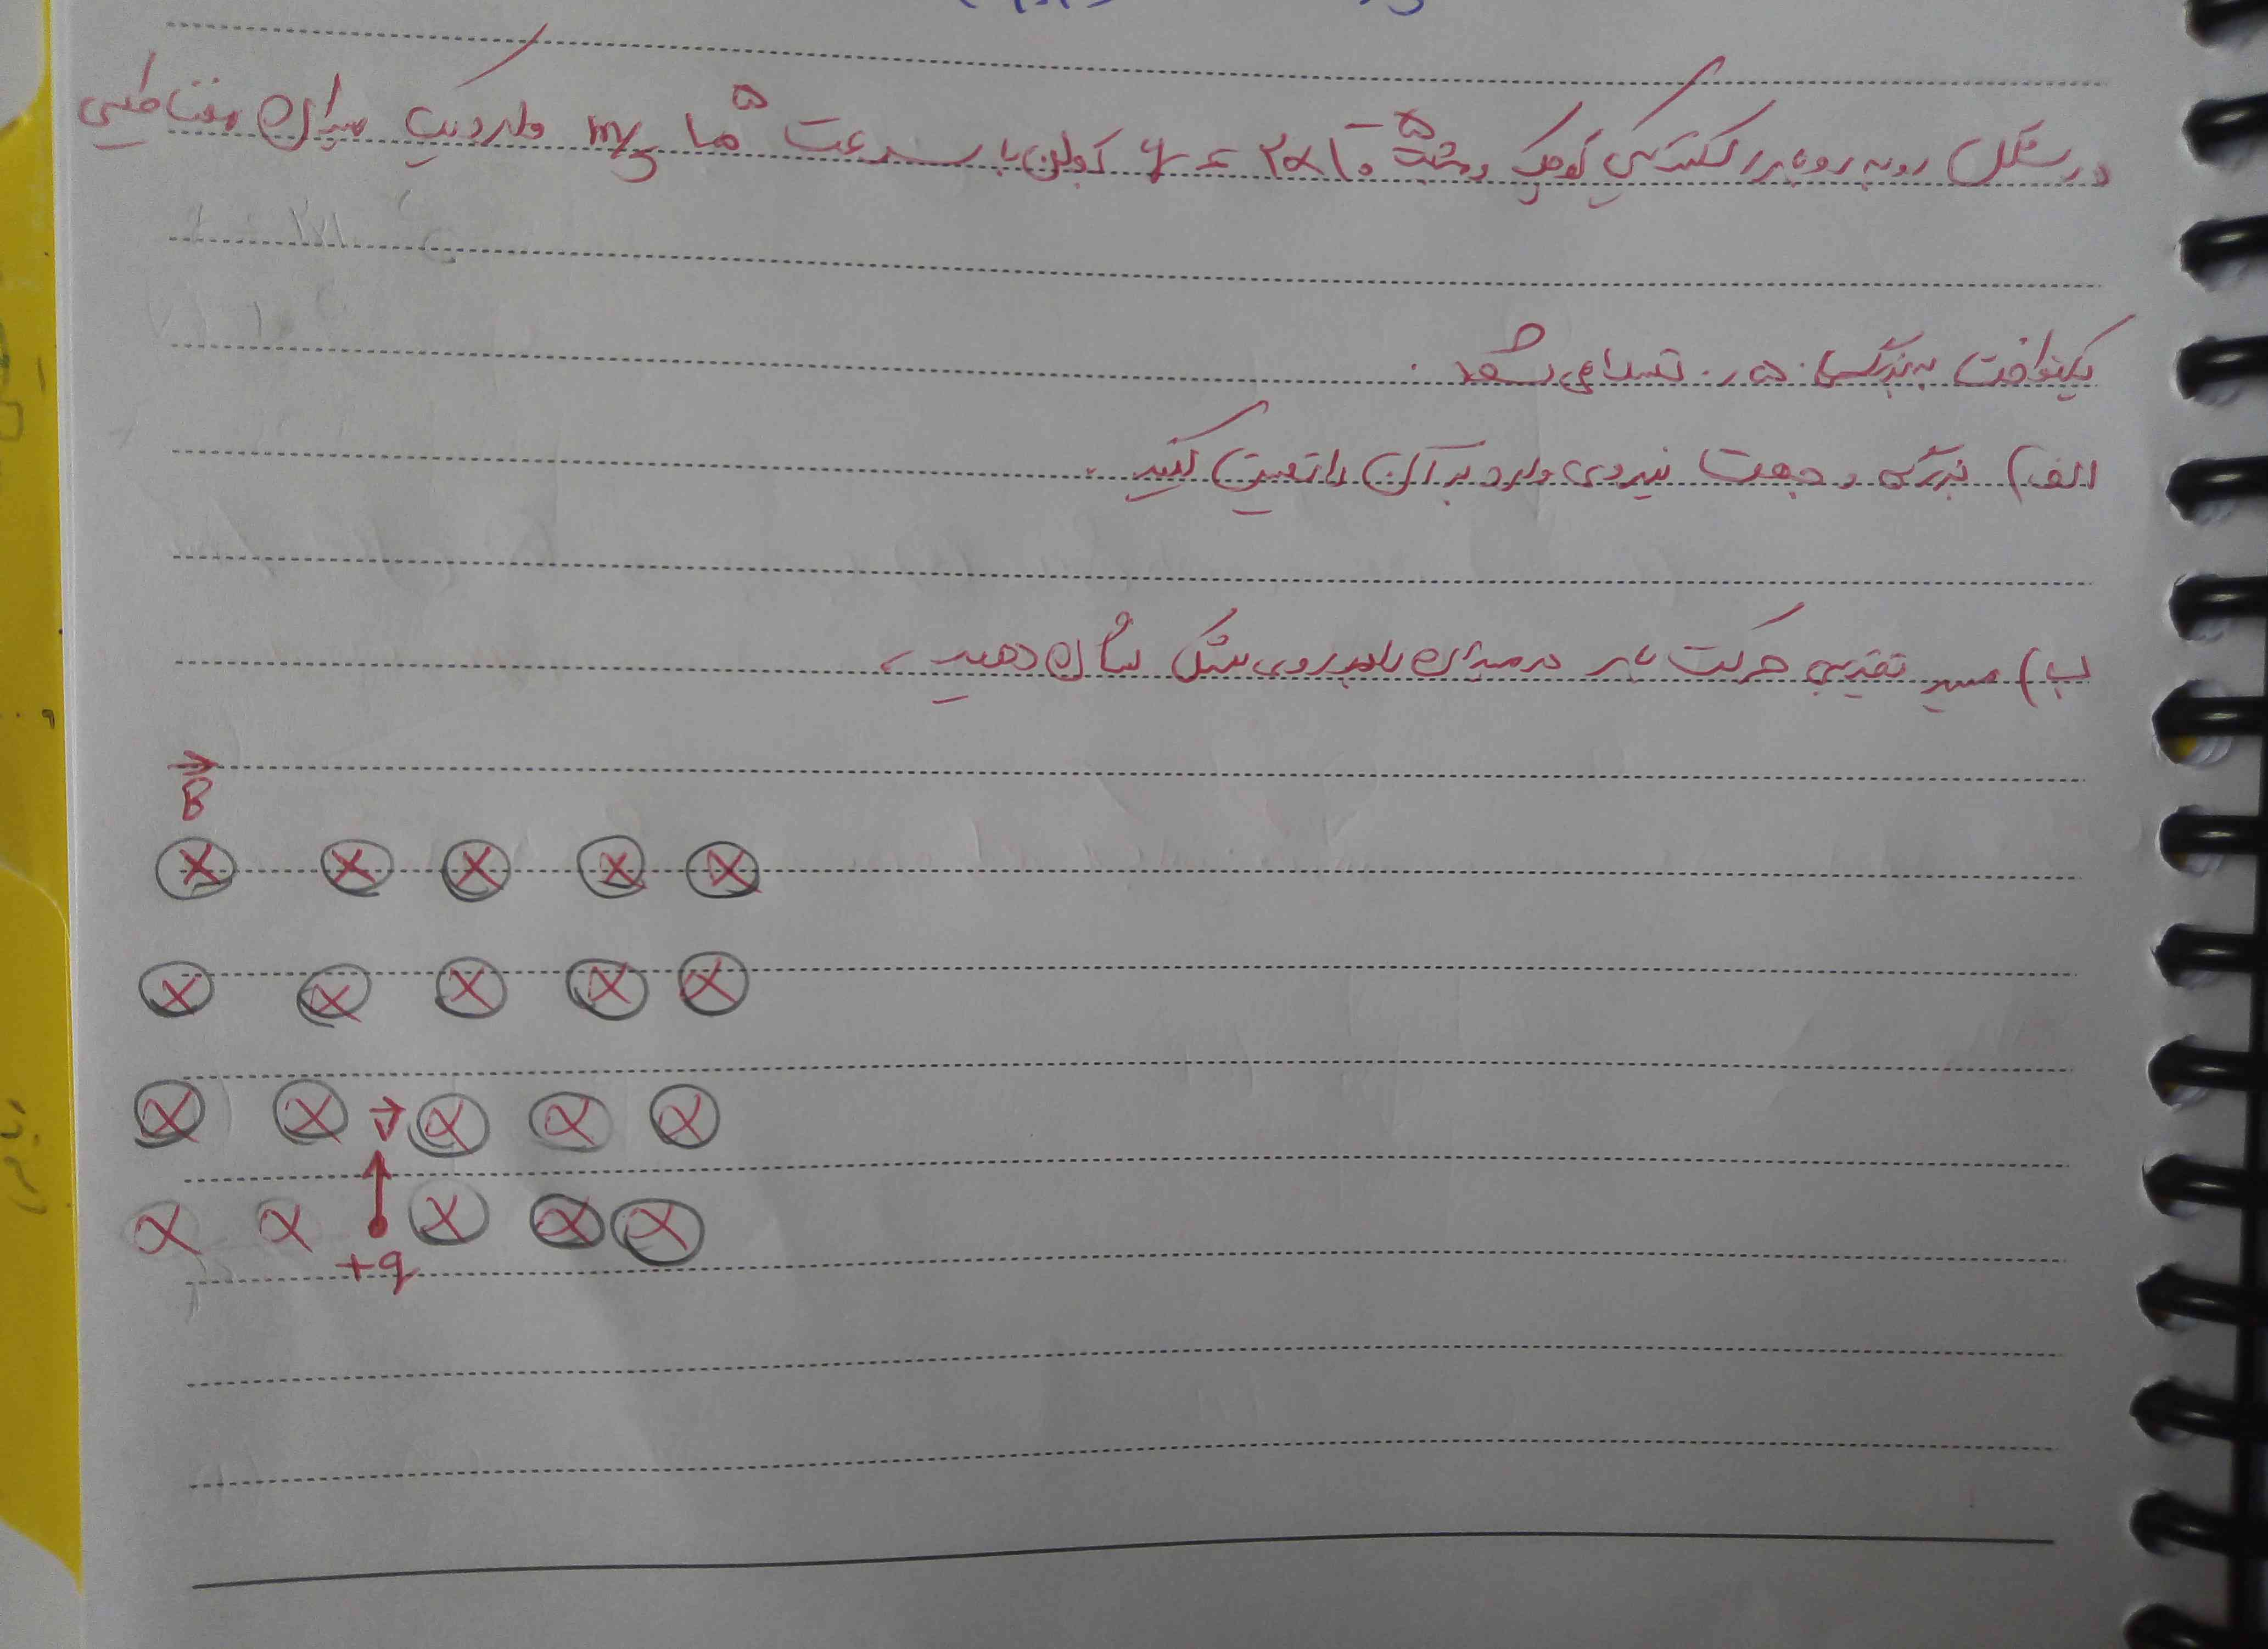 در شکل روبه رو بار الکتریکی کوچک و مثبت q = ۲×۱۰⁻⁵ کولن با سرعت ۱۰⁵ m/s وارد یک میدان مغناطیسی
یکنواخت به بزرگی ۰٫۰۵ تسلا می شود.
الف) بزرگی و جهت نیروی وارد بر آن را تعیین کنید.
ب) مسیر تقریبی حرکت بار در میدان را بر روی شکل نشان دهید.
B
x x x x x
x x x x x
x x v x x x
x x x x x
+q